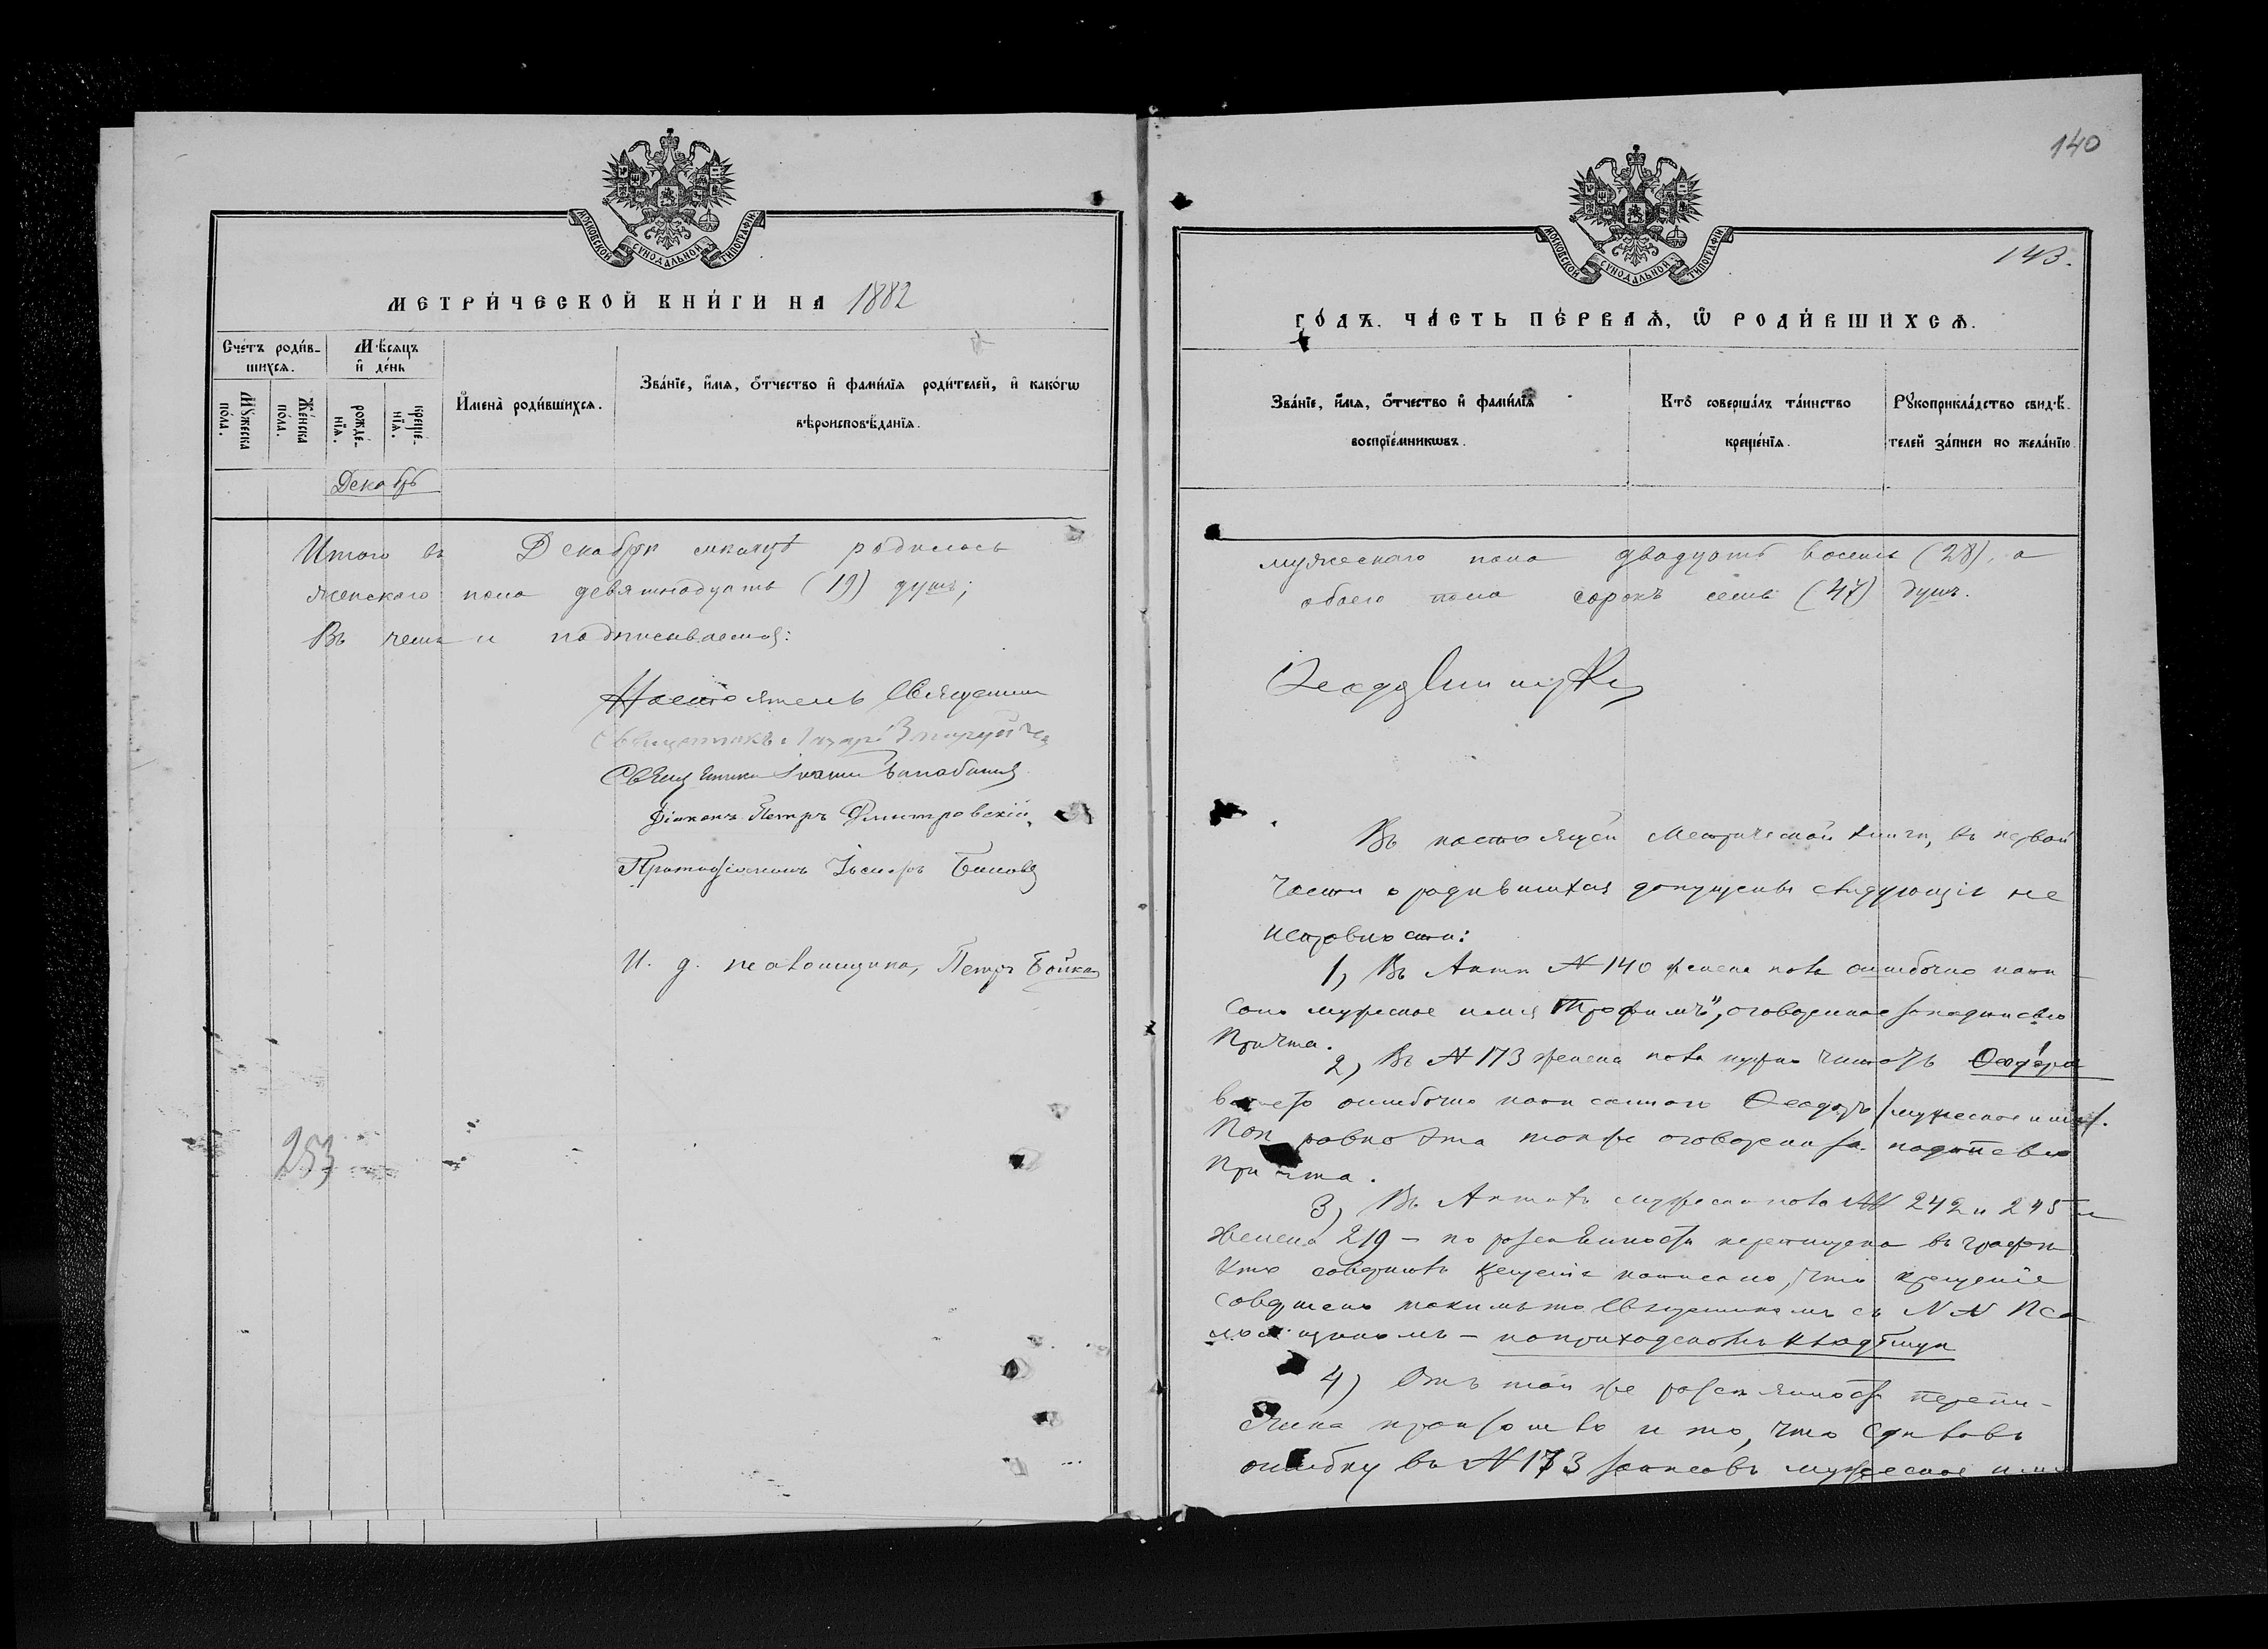 140
МОСКОВСКОЙ СѴНОДАЛЬНОЙ ТИПОГРАФІИ
МЕТРИ́ЧЕСКОЙ КНИ́ГИ НА 1882
Сче́тъ роди́в-
шихсѧ.
Мѣ́сѧцъ
и҆ де́нь
Мꙋ́жеска
по́ла.
Же́нска
по́ла.
рожде́-
нїѧ.
креще́-
нїѧ.
И҆мена̀ роди́вшихсѧ.
Зва́нїе, и҆́мѧ, ѻ҆́тчество и҆ фами́лїѧ роди́телей, и҆ како́гѡ
вѣроисповѣ́данїѧ.
Декабрь
Итого въ Декабрѣ мѣсяцѣ родилось
женскаго пола девятнадцать (19) душъ;
Въ чемъ и подписываемся:
Настоятель Священни
Священникъ Лазарь
Священникъ Іоаннъ
Діаконъ Петръ Димитровскій
Протодіаконъ
И. д. псаломщика, Петръ Бойко
253
МОСКОВСКОЙ СѴНОДАЛЬНОЙ ТИПОГРАФІИ
143.
ГО́ДЪ. ЧА́СТЬ ПЕ́РВАѦ, Ѡ҆ РОДИ́ВШИХСѦ.
Зва́нїе, и҆́мѧ, ѻ҆́тчество и҆ фами́лїѧ
воспрїе́мникѡвъ.
Кто̀ соверша́лъ та́инство
креще́нїѧ.
Рꙋкоприкла́дство свидѣ́-
телей за́писи по жела́нїю
мужескаго пола двадцать восемь (28), а
обоего пола сорокъ семь (47) душъ.
Въ настоящей Метрической книги, въ первой
части о родившихся допущены слѣдующія не
исправности:
1, Въ Актѣ № 140 женска пола ошибочно напи
сано мужеское имя Трофимъ", оговоренное за подписью
Причта.
2, Въ № 173 женска пола нужно читать Ѳеодора
вмѣсто ошибочно написаннаго Ѳеодоръ /мужеское имя/.
равно эта также оговорена за подписью
Причта.
3, Въ Актахъ мужеска пола №№ 242 и 245 и
женска 219 – по разсѣянности переписчика въ графѣ
Кто совершалъ крещеніе написано, что крещеніе
совершено такимъ то Священникомъ съ N N Пса
ломщикомъ –
4) Отъ той же разсѣянности перепи-
счика произошло и то, что сдѣлавъ
ошибку въ № 173 записавъ мужеское имя